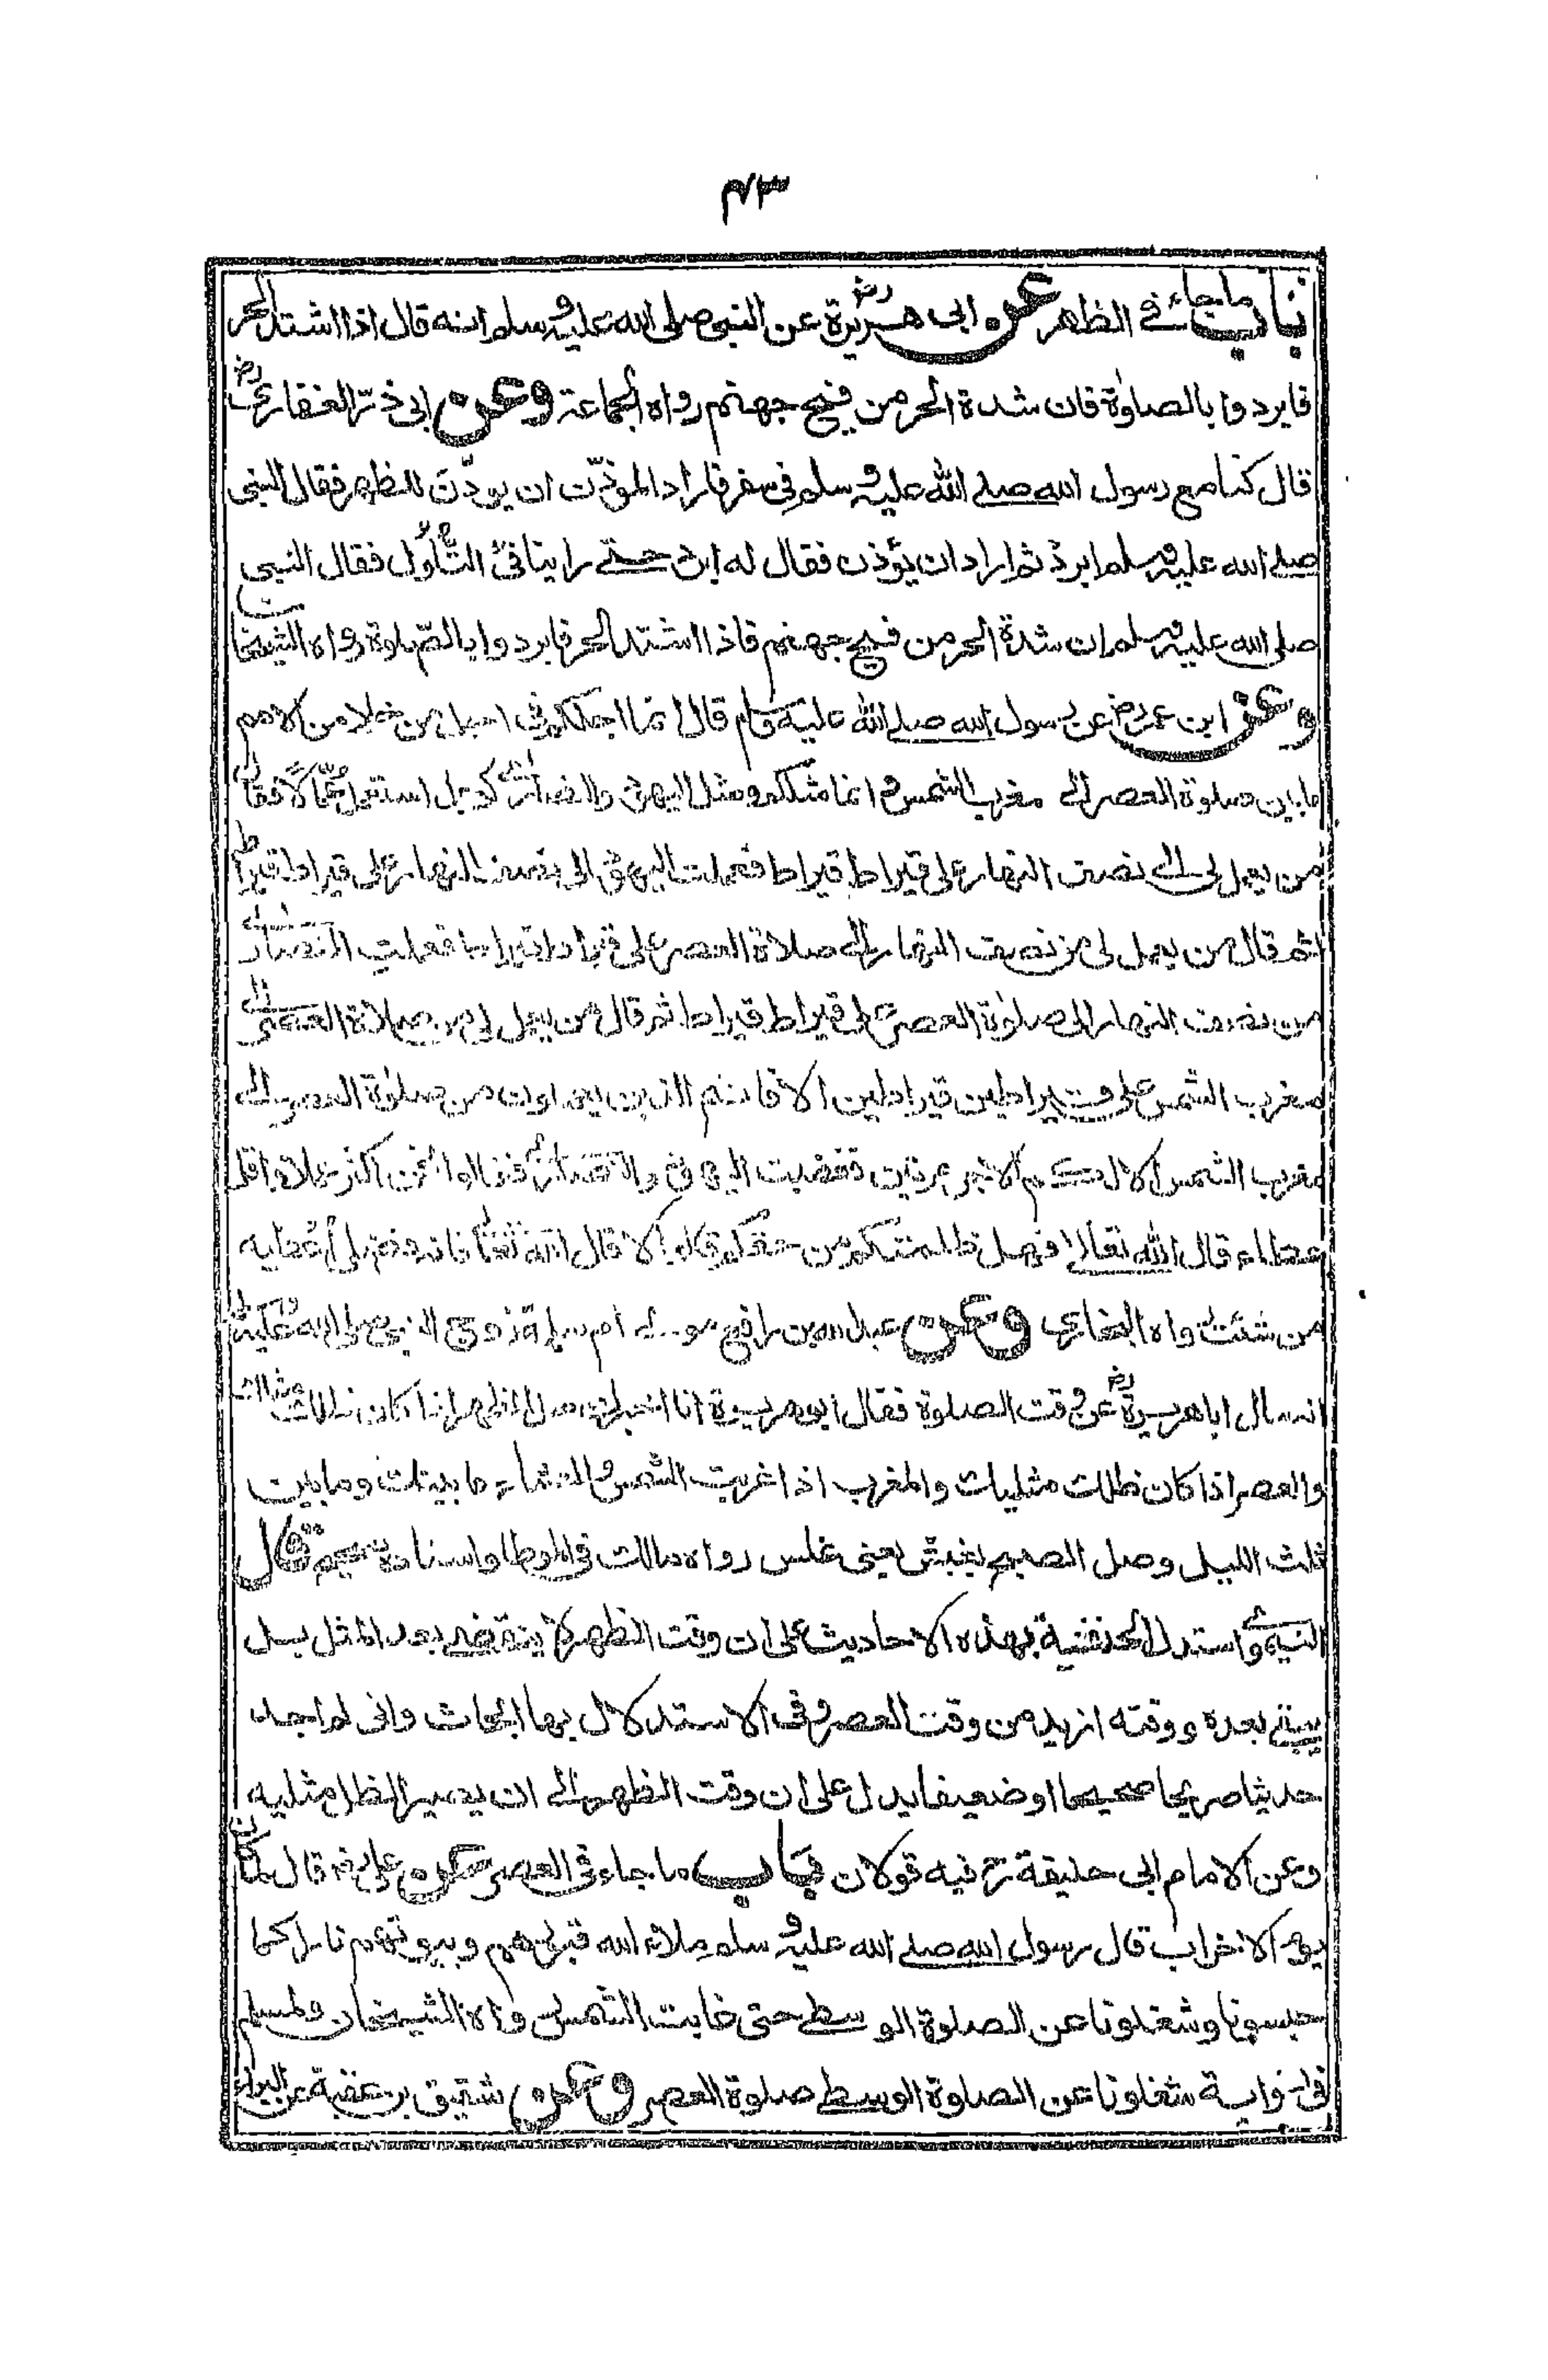 ٤٣
باب ما جاء في الظهر عن ابى هريرة رض عن النبى صلى الله عليه وسلم انه قال اذا اشتد الحر
فابردوا بالصلوة فان شدة الحر من فيح جهنم رواه الجماعة وعن ابى ذر الغفارى رض
قال كنا مع رسول الله صلى الله عليه وسلم فى سفر فاراد المؤذن ان يؤذن للظهر فقال النبى
صلى الله عليه وسلم ابرد ثم اراد ان يؤذن فقال له ابرد حتى راينا فئ التلول فقال النبى
صلى الله عليه وسلم ان شدة الحر من فيح جهنم فاذا اشتد الحر فابردوا بالصلوة رواه الشيخان
وعن ابن عمر رض عن رسول الله صلى الله عليه وسلم قال انما اجلكم فى اجل من خلا من الامم
ما بين صلوة العصر الى مغرب الشمس وانما مثلكم ومثل اليهود والنصارى كرجل استعمل عمالا فقال
من يعمل لى الى نصف النهار على قيراط قيراط فعملت اليهود الى نصف النهار على قيراط قيراط
ثم قال من يعمل لى من نصف النهار الى صلاة العصر على قيراط قيراط فعملت النصارى
من نصف النهار الى صلوة العصر على قيراط قيراط ثم قال من يعمل لى من صلاة العصر الى
مغرب الشمس على قيراطين قيراطين الا فانتم الذين يعملون من صلوة العصر الى
مغرب الشمس الا لكم الاجر مرتين فغضبت اليهود والنصارى فقالوا نحن اكثر عملا واقل
عطاء قال الله تعالى فهل ظلمتكم من حقكم قالوا لا قال الله تعالى فانه فضلى اعطيه
من شئت رواه البخارى وعن عبد الله بن رافع مولى ام سلمة زوج النبى صلى الله عليه وسلم
انه سال ابا هريرة رض عن وقت الصلوة فقال ابو هريرة انا اخبرك صل الظهر اذا كان ظلك مثلك
والعصر اذا كان ظلك مثليك والمغرب اذا غربت الشمس والعشاء ما بينك وما بين
ثلث الليل وصل الصبح بغبش يعنى غلس رواه مالك فى الموطا واسناده صحيح قال
النيموى استدل الحنفية بهذه الاحاديث على ان وقت الظهر لا ينقضى بعد المثل بل
يبقى بعده ووقته ازيد من وقت العصر وفى الاستدلال بها ابحاث وانى لم اجد
حديثا صريحا صحيحا او ضعيفا يدل على ان وقت الظهر الى ان يصير الظل مثليه
وعن الامام ابى حنيفة رح فيه قولان باب ما جاء فى العصر عن على رض قال لما كان
يوم الاحزاب قال رسول الله صلى الله عليه وسلم ملاء الله قبورهم وبيوتهم نارا كما
حبسونا وشغلونا عن الصلوة الوسطى حتى غابت الشمس رواه الشيخان ولمسلم
فى رواية شغلونا عن الصلوة الوسطى صلوة العصر وعن شقيق بن عقبة عن البراء